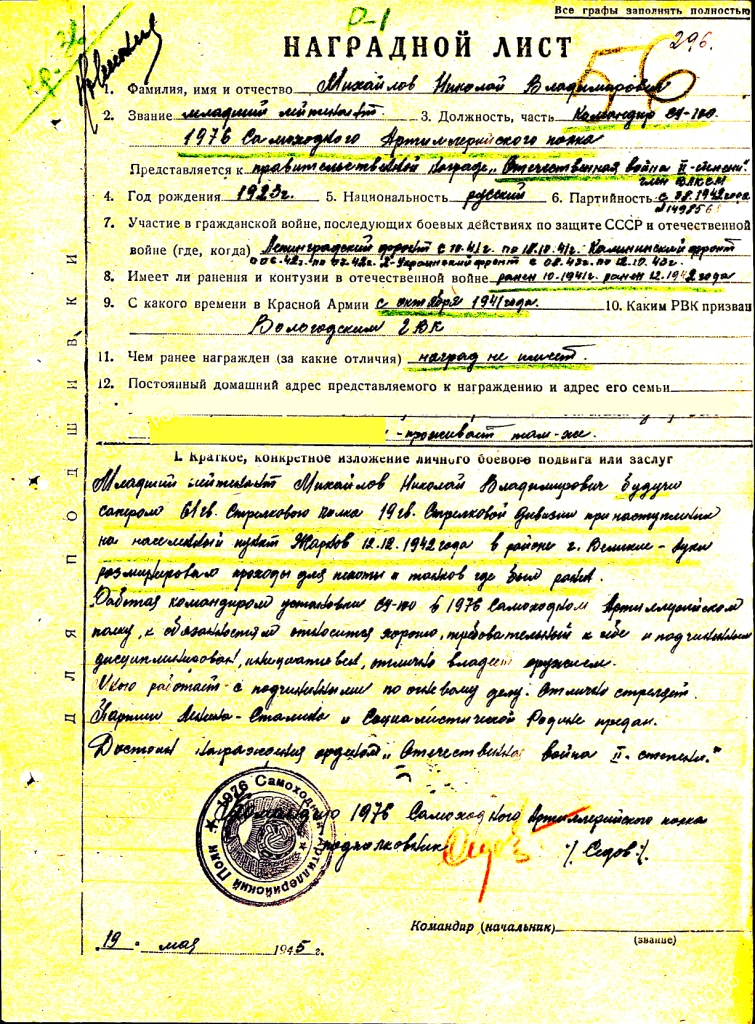 Все графы заполнять полностью
О-1
НАГРАДНОЙ ЛИСТ
56
296.
1. Фамилия, имя и отчество Михайлов Николай Владимирович
2. Звание младший лейтенант. 3. Должность, часть Командир СУ-100.
1976 Самоходного Артиллерийского полка
Представляется к правительственной награде „Отечественная война II-степени".
член ВЛКСМ
4. Год рождения 1923г. 5. Национальность русский 6. Партийность с 08.1942года
7. Участие в гражданской войне, последующих боевых действиях по защите СССР и отечественной
войне (где, когда) Ленинградский фронт с 10.41г. по 18.10.41г. Калининский фронт
по 07.42г. 2-Украинский фронт с 08.43г. по 12.10.43г.
8. Имеет ли ранения и контузии в отечественной войне ранен 10.1941г. ранен 12.1942года
9. С какого времени в Красной Армии с октября 1941года. 10. Каким РВК призван
Вологодским ГВК
11. Чем ранее награжден (за какие отличия) наград не имеет.
12. Постоянный домашний адрес представляемого к награждению и адрес его семьи
- проживает там-же.
I. Краткое, конкретное изложение личного боевого подвига или заслуг
Младший лейтенант Михайлов Николай Владимирович будучи
сапером 61 гв. Стрелкового полка 19 гв. Стрелковой дивизии при наступлении
на населенный пункт Жарков 12.12.1942года в районе г. Великие-Луки
разминировал проходы для пехоты и танков где был ранен.
Работая командиром установки СУ-100 в 1976 Самоходном Артиллерийском
полку, к обязанностям относится хорошо, требовательный к себе и подчиненным
дисциплинирован, инициативен, отлично владеет оружием.
Много работает с подчиненными по огневому делу. Отлично стреляет.
Партии Ленина-Сталина и Социалистической Родине предан.
Достоин награждения орденом „Отечественная война II-степени."
Командир 1976 Самоходного Артиллерийского полка
подполковник Седов /Седов/.
★ 1976 Самоходный Артиллерийский Полк
Командир (начальник)
(звание)
„19" мая 1945 г.
ДЛЯ ПОДШИВКИ